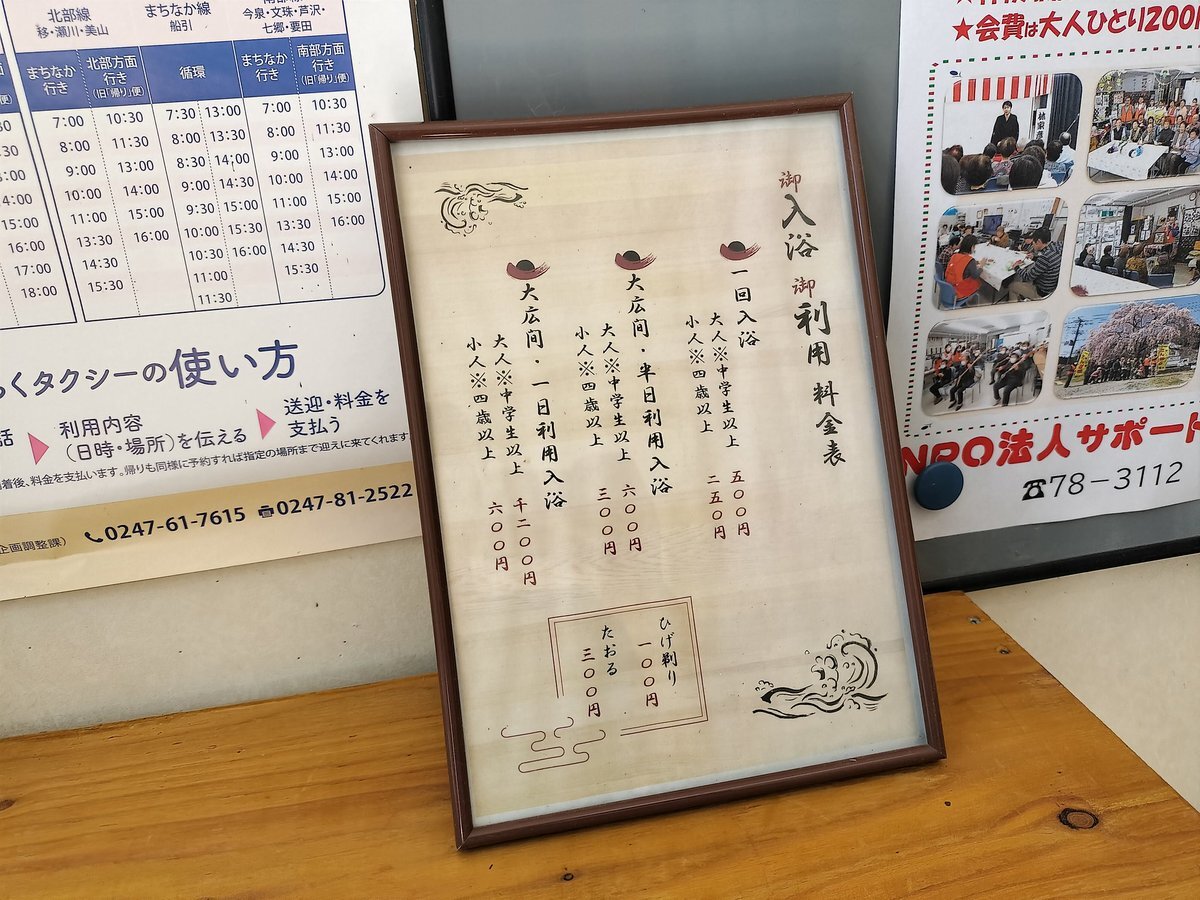 御入浴 御利用料金表
一回入浴
大人※中学生以上 五〇〇円
小人※四歳以上 二五〇円
大広間・半日利用入浴
大人※中学生以上 六〇〇円
小人※四歳以上 三〇〇円
大広間・一日利用入浴
大人※中学生以上 千二〇〇円
小人※四歳以上 六〇〇円
ひげ剃り 一〇〇円
たおる 三〇〇円
北部線
移・瀬川・美山
まちなか線
船引
今泉・文珠・芦沢・
七郷・要田
まちなか行き
北部方面行き
(旧「帰り」便)
循環
まちなか行き
南部方面行き
(旧「帰り」便)
7:00 10:30 7:30 13:00 7:00 10:30
8:00 11:30 8:00 13:30 8:00 11:30
9:00 13:00 8:30 14:00 9:00 13:00
10:00 14:00 9:00 14:30 10:00 14:00
15:00 11:00 15:00 9:30 15:00 11:00 15:00
16:00 13:30 16:00 10:00 15:30 13:30 16:00
17:00 14:30 10:30 16:00 14:30
18:00 15:30 11:00 15:30
11:30
くタクシーの使い方
話
利用内容
(日時・場所)を伝える
送迎・料金を
支払う
着後、料金を支払います。帰りも同様に予約すれば指定の場所まで迎えに来てくれます
企画調整課)
0247-61-7615
0247-81-2522
★会費は大人ひとり200
NPO法人サポート
☎78-3112